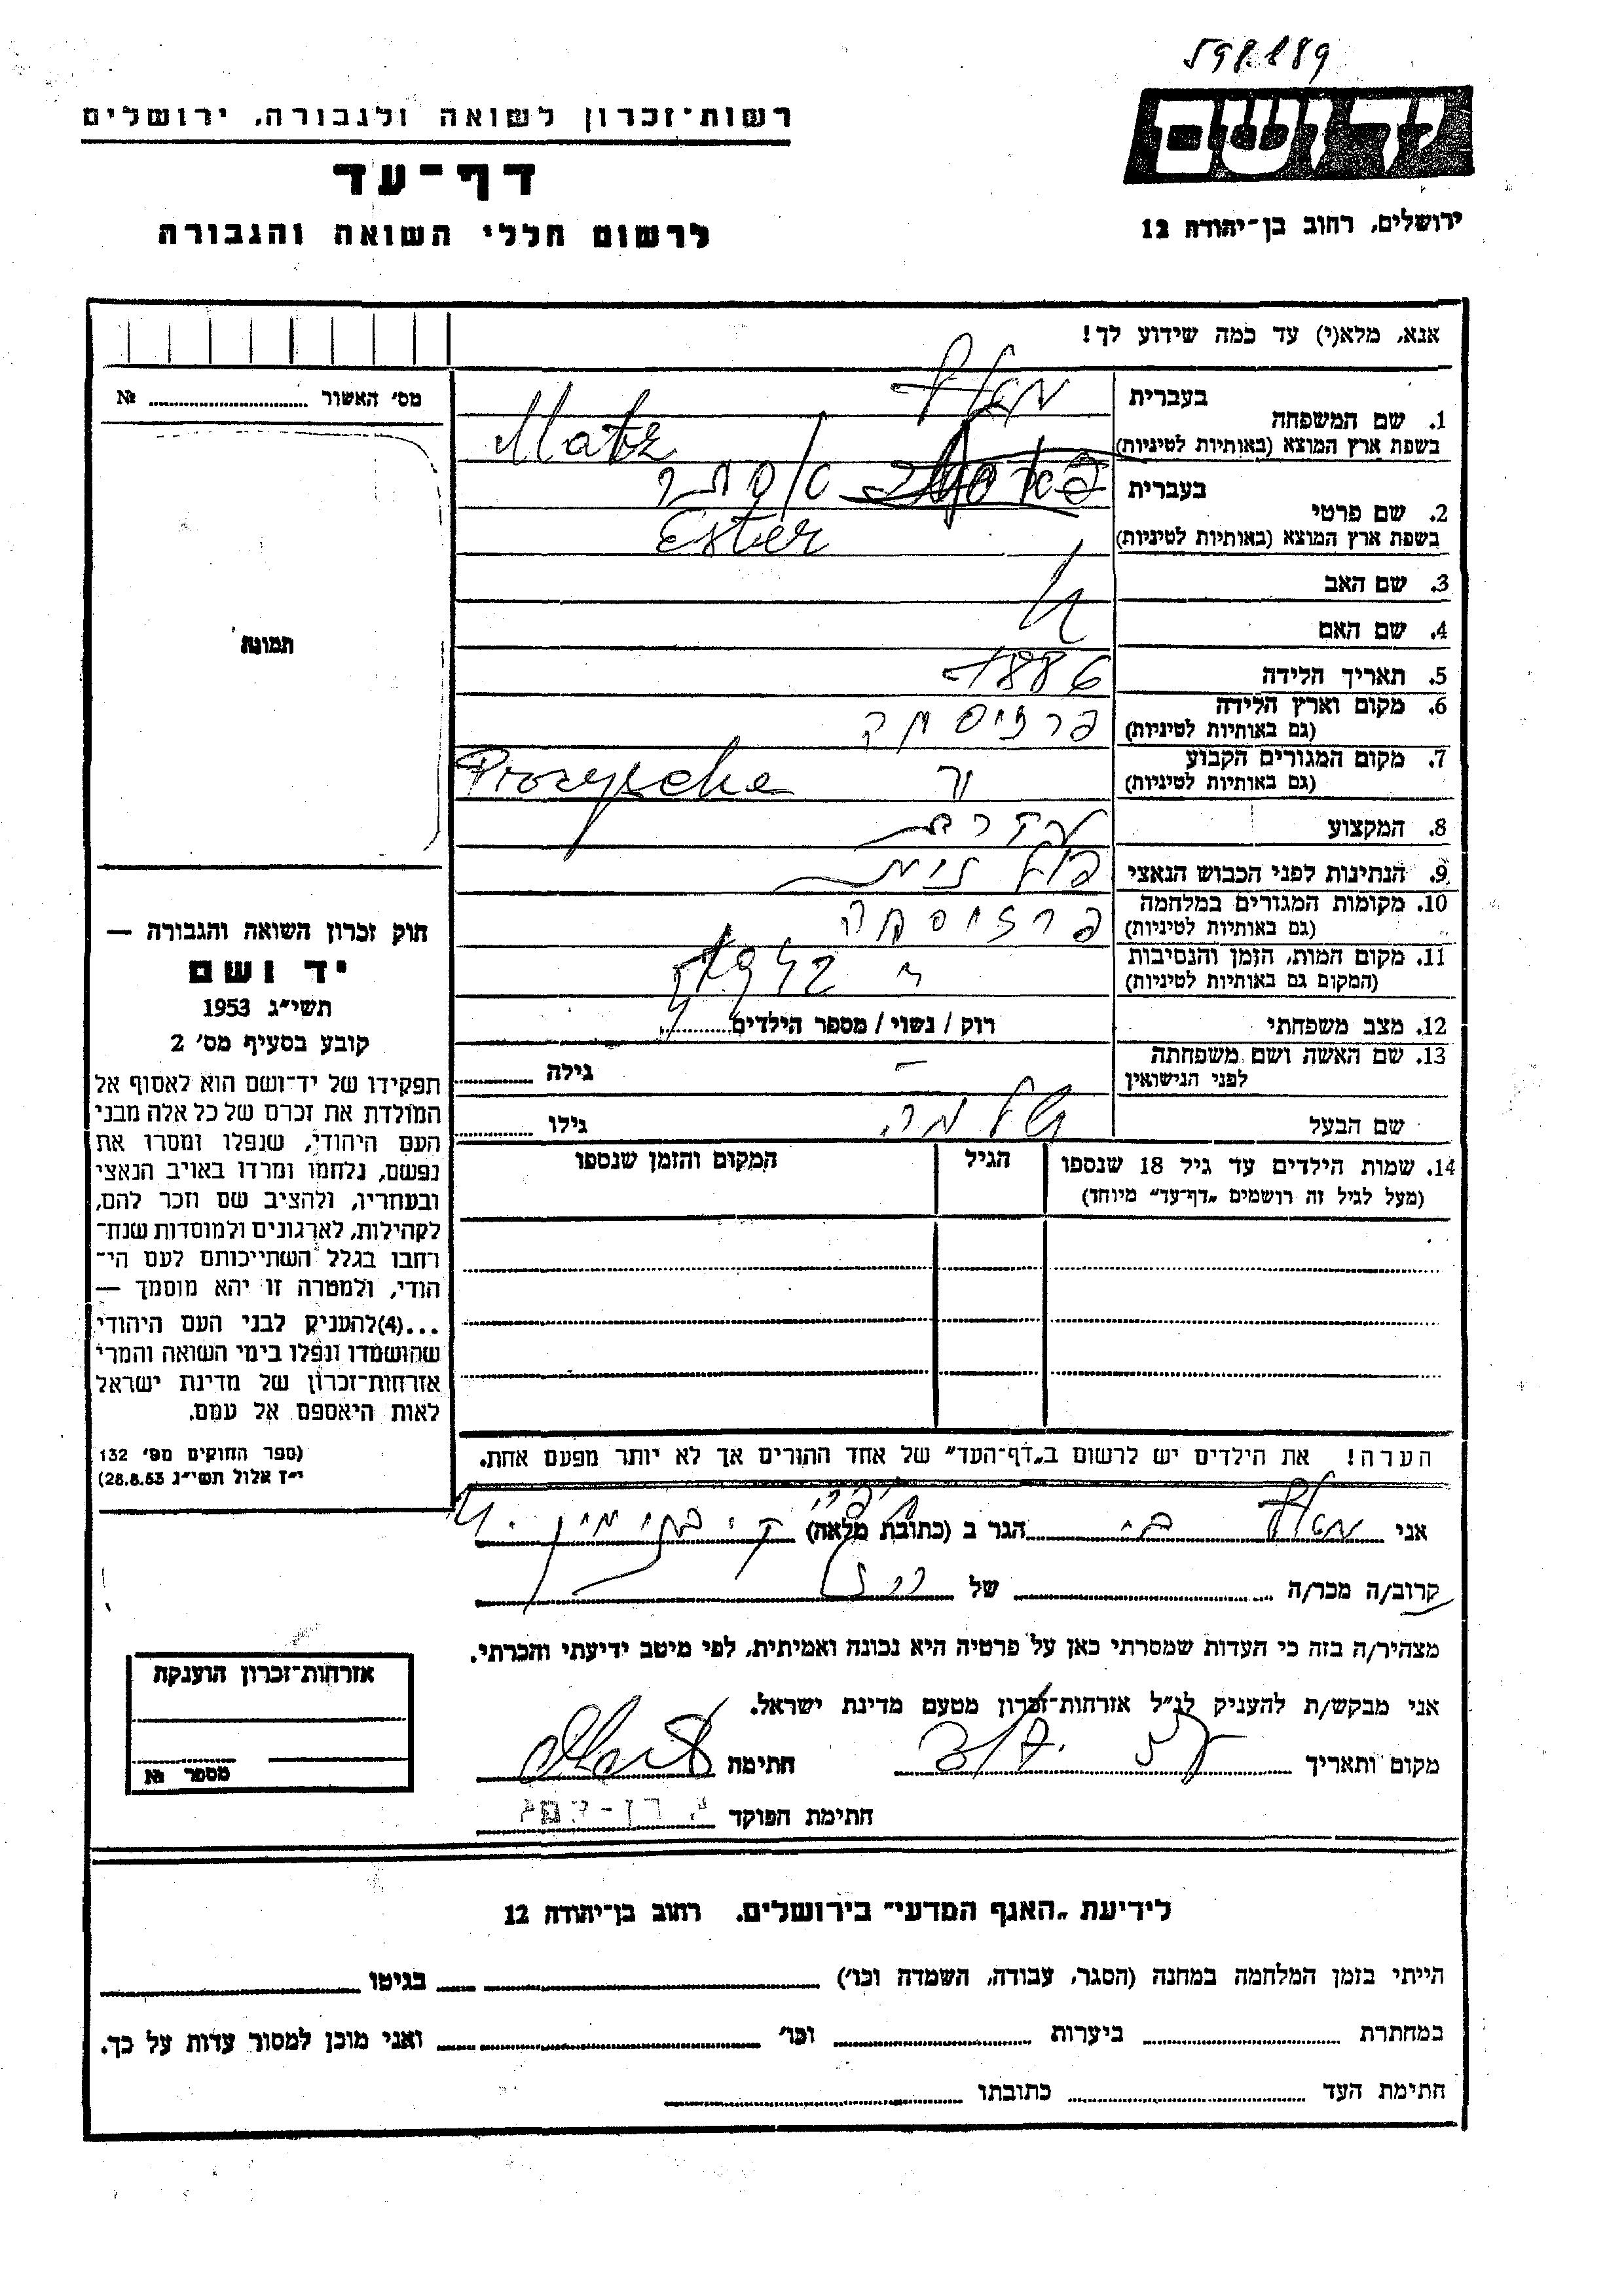 598189
רשות־זכרון לשואה ולגבורה, ירושלים
יד ושם
דף־עד
לרשום חללי השואה והגבורה
ירושלים, רחוב בן־יהודה 12
אנא, מלא(י) עד כמה שידוע לך!
מס׳ האשור № 
1. שם המשפחה
בעברית
בשפת ארץ המוצא (באותיות לטיניות)
Matz
2. שם פרטי
בעברית אסתר
בשפת ארץ המוצא (באותיות לטיניות)
Ester
3. שם האב
4. שם האם
5. תאריך הלידה 1886
6. מקום וארץ הלידה
(גם באותיות לטיניות)
7. מקום המגורים הקבוע
(גם באותיות לטיניות)
8. המקצוע
9. הנתינות לפני הכבוש הנאצי
10. מקומות המגורים במלחמה
(גם באותיות לטיניות)
11. מקום המות, הזמן והנסיבות
(המקום גם באותיות לטיניות)
1942
12. מצב משפחתי רוק / נשוי / מספר הילדים
13. שם האשה ושם משפחתה
לפני הנישואין
– גילה
שם הבעל שלמה גילו
14. שמות הילדים עד גיל 18 שנספו
(מעל לגיל זה רושמים „דף־עד” מיוחד)
הגיל
המקום והזמן שנספו
הערה! את הילדים יש לרשום ב„דף־העד” של אחד ההורים אך לא יותר מפעם אחת.
תמונה
חוק זכרון השואה והגבורה —
יד ושם
תשי״ג 1953
קובע בסעיף מס׳ 2
תפקידו של יד־ושם הוא לאסוף אל
המולדת את זכרם של כל אלה מבני
העם היהודי, שנפלו ומסרו את
נפשם, נלחמו ומרדו באויב הנאצי
ובעוזריו, ולהציב שם וזכר להם,
לקהילות, לארגונים ולמוסדות שנח־
רחבו בגלל השתייכותם לעם הי־
הודי, ולמטרה זו יהא מוסמך —
...(4)להעניק לבני העם היהודי
שהושמדו ונפלו בימי השואה והמרי
אזרחות־זכרון של מדינת ישראל
לאות היאספם אל עמם.
(ספר החוקים מס׳ 132
י״ז אלול תשי״ג 28.8.53)
אני הגר ב (כתובת מלאה)
קרוב/ה מכר/ה של
מצהיר/ה בזה כי העדות שמסרתי כאן על פרטיה היא נכונה ואמיתית, לפי מיטב ידיעתי והכרתי.
אני מבקש/ת להעניק לנ״ל אזרחות־זכרון מטעם מדינת ישראל.
מקום ותאריך חתימה
חתימת הפוקד
אזרחות־זכרון הוענקה
מספר №
לידיעת „האגף המדעי” בירושלים, רחוב בן־יהודה 12
הייתי בזמן המלחמה במחנה (הסגר, עבודה, השמדה וכו׳) בגיטו
במחתרת ביערות וכו׳ ואני מוכן למסור עדות על כך.
חתימת העד כתובתו